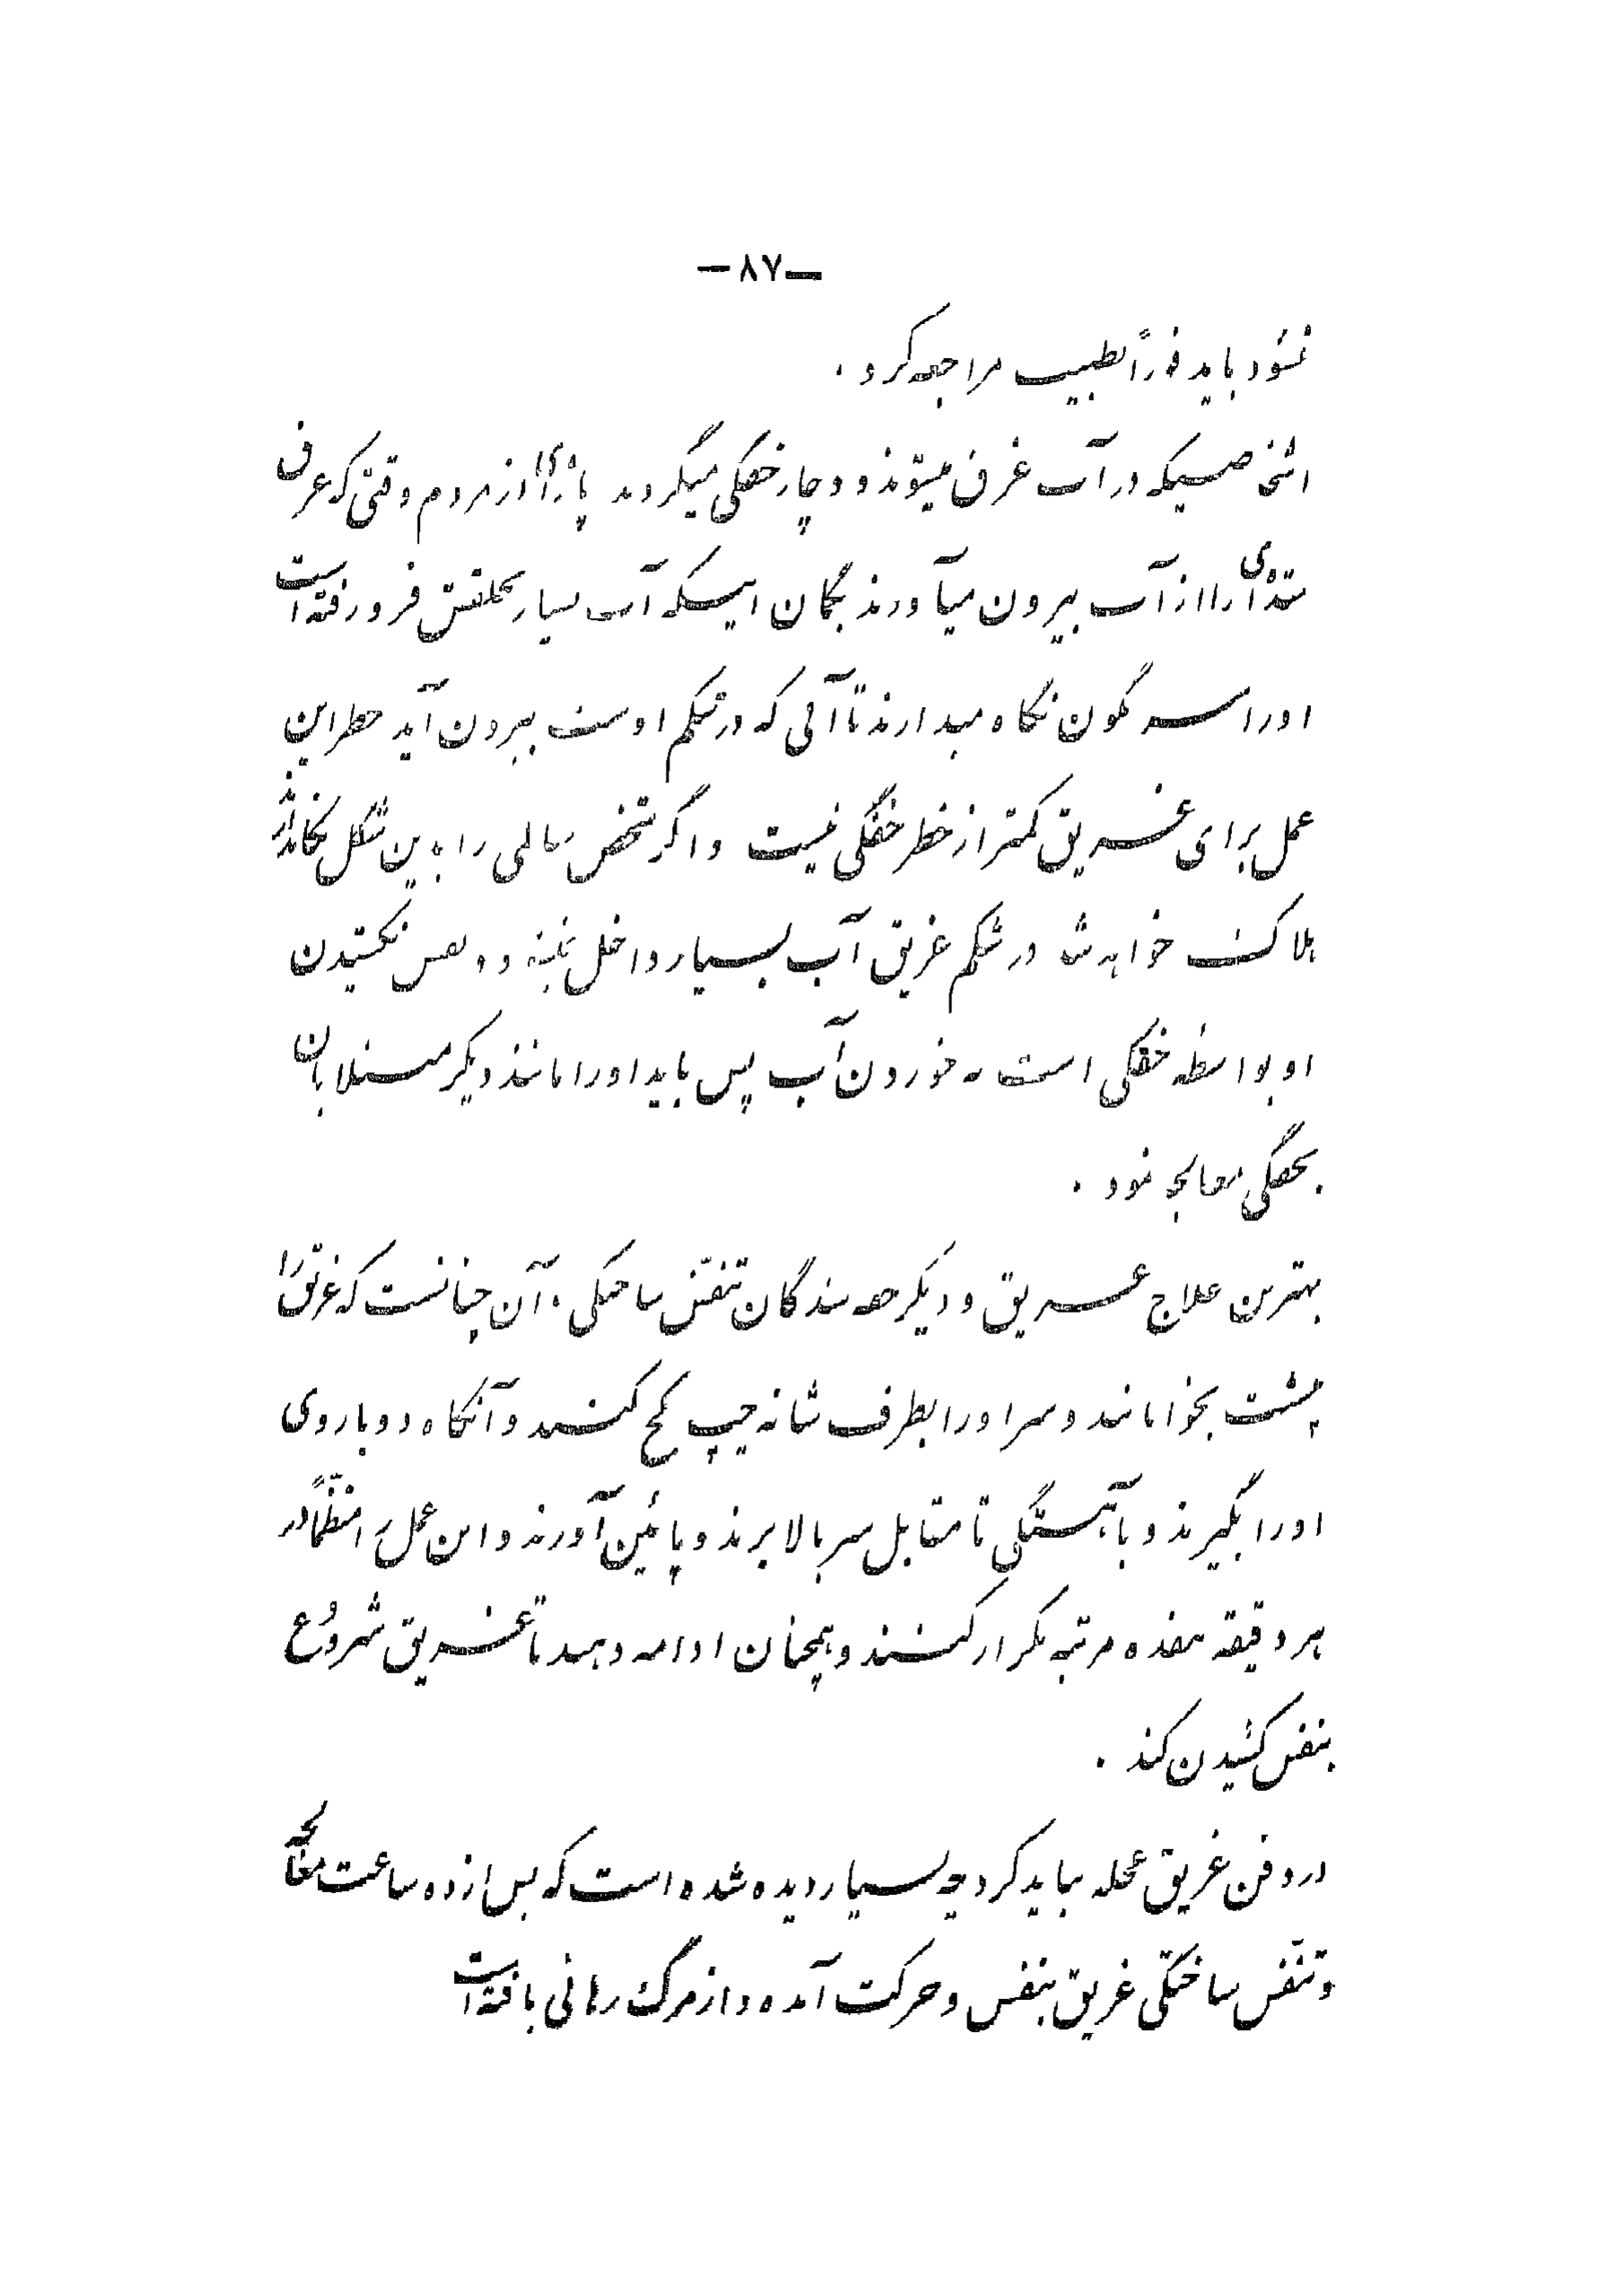 ـ۸۷ـ
نشود باید فوراً بطبیب مراجعه کرد .
اشخاصیکه در آب غرق میشوند و دچار خفگی میگردند پاره‌ای از مردم وقتی که غرق
شده‌ای را از آب بیرون میآورند بگمان اینکه آب بسیار بحلقش فرو رفته است
او را سرنگون نگاه میدارند تا آبی که در شکم اوست بیرون آید خطر این
عمل برای غریق کمتر از خطر خفگی نیست و اگر شخص سالمی را بدین شکل نگاهدارند
هلاک خواهد شد در شکم غریق آب بسیار داخل نمیشود و نفس نکشیدن
او بواسطه خفگی است نه خوردن آب پس باید او را مانند دیگر مبتلایان
بخفگی معالجه نمود .
بهترین علاج غریق و دیگر خفه شدگان تنفس ساختگی . آن چنانست که غریق را
بپشت بخوابانند و سر او را بطرف شانه چپ کج کنند و آنگاه دو بازوی
او را بگیرند و بآهستگی تا مقابل سر بالا برند و پائین آورند و این عمل را منظماً در
هر دقیقه هفده مرتبه تکرار کنند و همچنان ادامه دهند تا غریق شروع
بنفس کشیدن کند .
در دفن غریق عجله نباید کرد چه بسیار دیده شده است که پس از ده ساعت معالجه
و تنفس ساختگی غریق بنفس و حرکت آمده و از مرگ رهائی یافته است